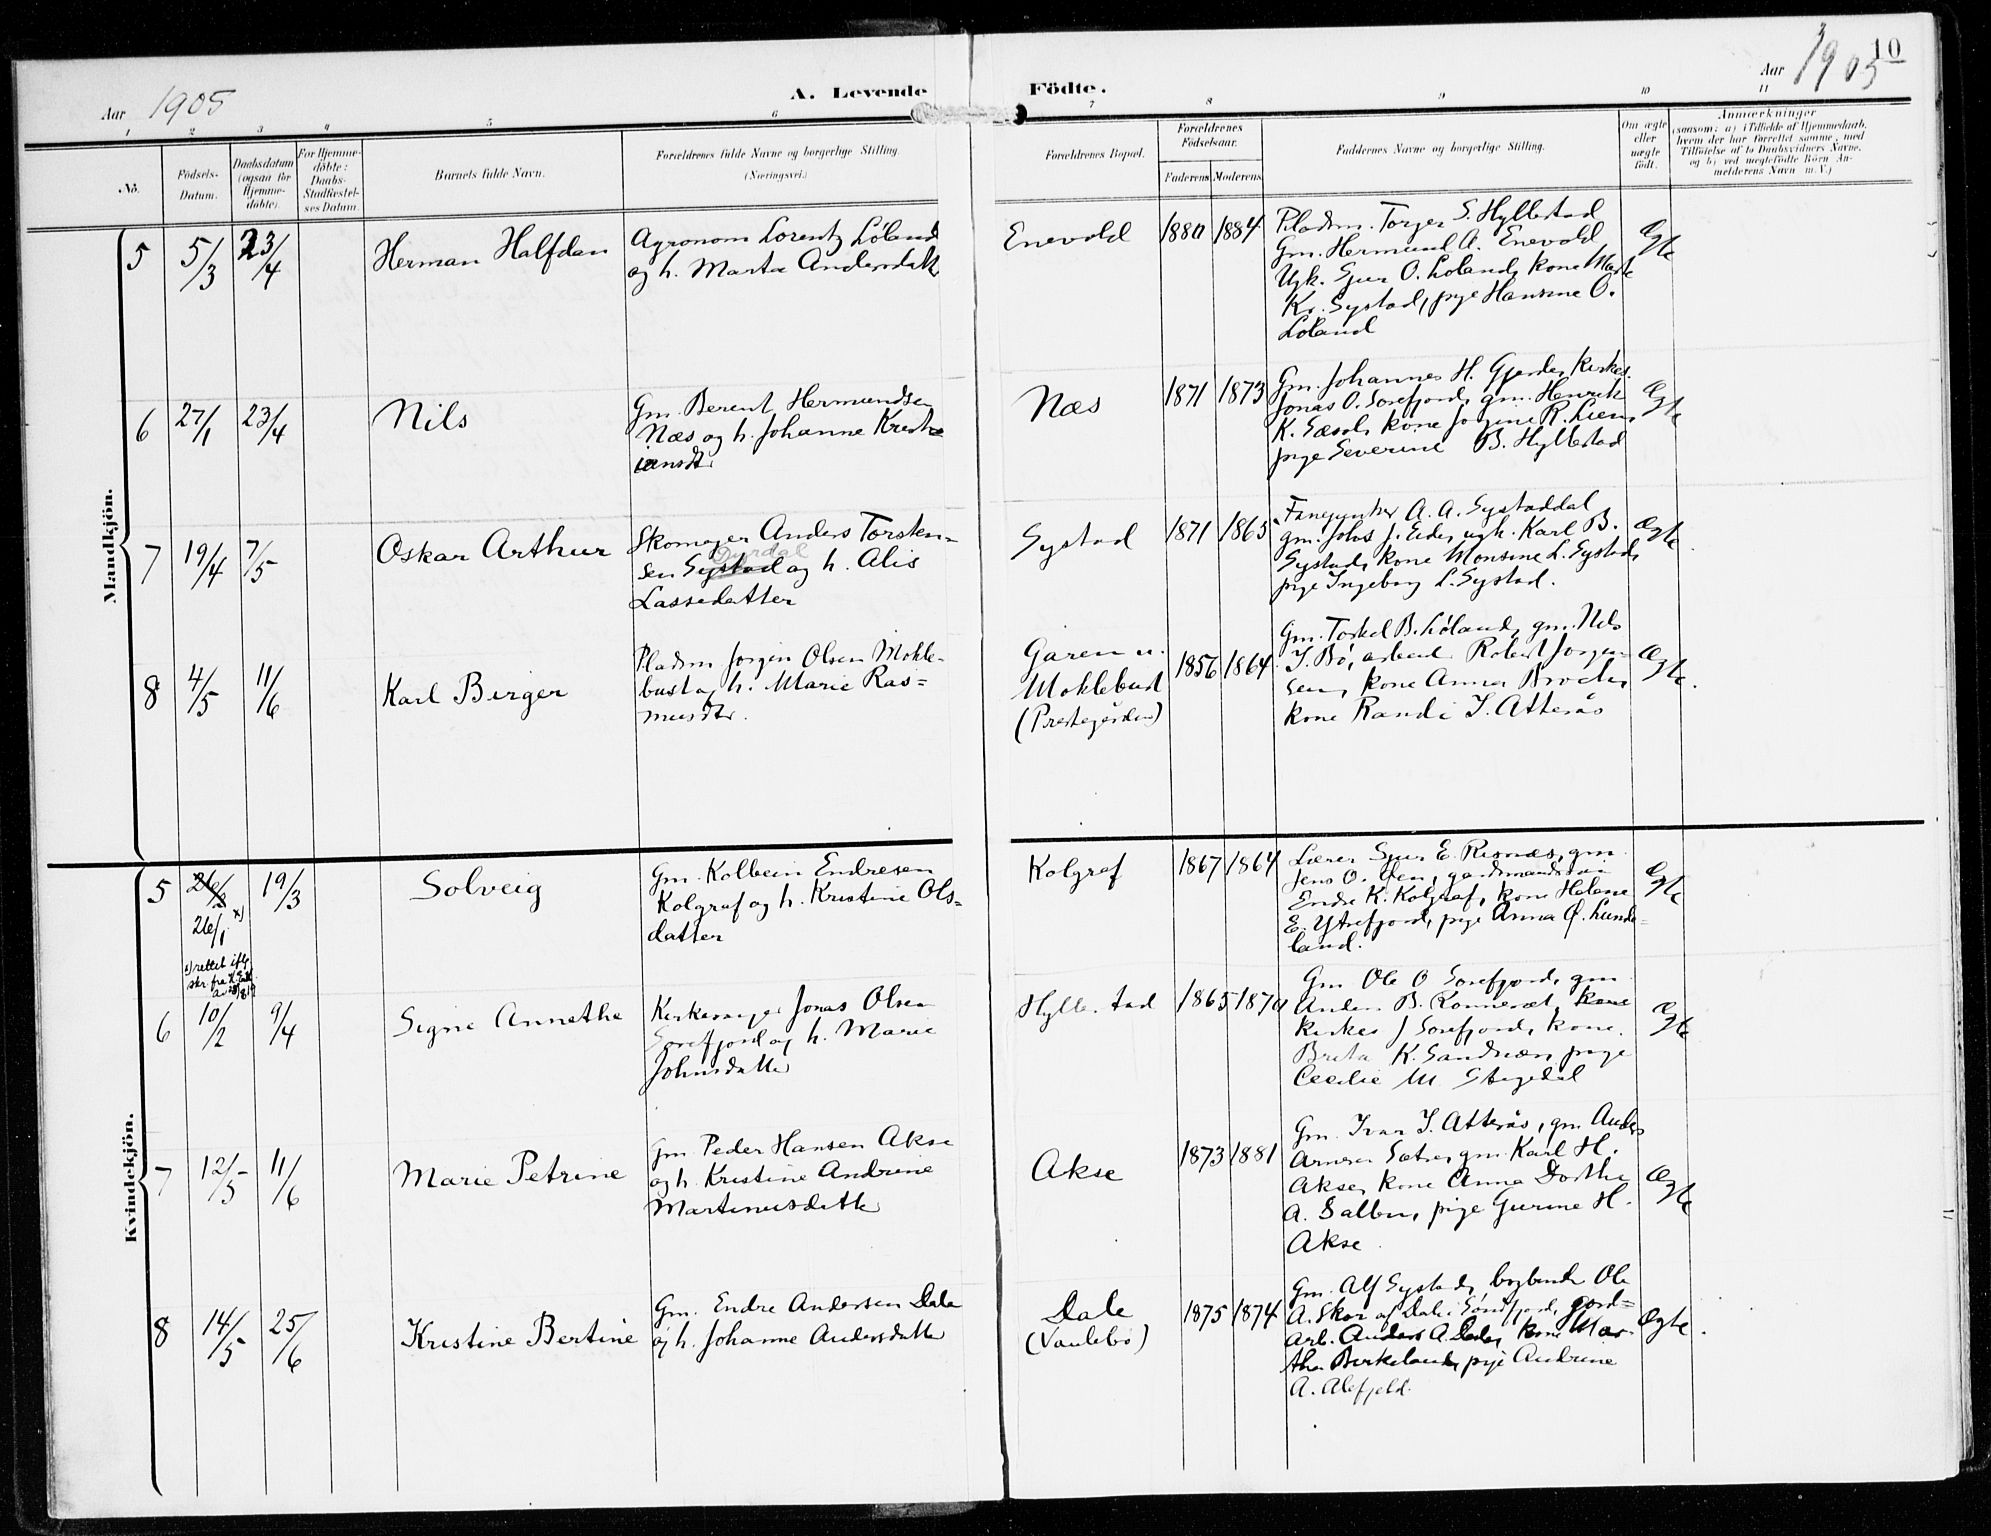 Aar 1905
A. Levende Födte.
Aar 1905
10
1 2 3 4 5 6 7 8 9 10 11
No.
Födsels-
Datum.
Daabsdatum
(ogsaa for
Hjemme-
döbte).
For Hjemme-
döbte:
Daabs-
Stadfæstel-
ses Datum.
Barnets fulde Navn.
Forældrenes fulde Navne og borgerlige Stilling.
(Næringsvei.)
Forældrenes Bopæl.
Forældrenes
Födselsaar.
Faderens Moderens
Faddernes Navne og borgerlige Stilling.
Om ægte
eller
uægte
født.
Anmærkninger
(saasom: a) i Tilfælde af Hjemmedaab,
hvem der har forrettet samme, med
Tilföielse af to Daabsvidners Navne,
og b) ved uegtefödte Börn An-
melderens Navn m. V.)
Mandkjön.
5
5/3
23/4
Herman Halfdan
Agronom Lorentz Løland
og h. Marta Andersdatter
Enevold
1880 1884
Pladsm. Torger S. Hyllestad
Gm. Hermund A. Enevold
Ugk. Sjur O. Løland, kone
Kr. Systad, pige Hansine O.
Løland
Ægte
6
27/1
23/4
Nils
Gm. Berent Hermundsen
Næs og h. Johanne Krist
iansdtr
Næs
1871 1873
Gm. Johannes H. Gjerde, Kirkes.
Jonas O. Sørefjord, gm. Henrik
K. kone Jorgine R. Lien,
pige Severine B. Hyllestad
Ægte
7
19/4
7/5
Oskar Arthur
Skomager Anders Torsten-
sen Systad og h. Alis
Lassedatter
Systad
1871 1865
A. A. Systaddal
gm. Johs J. Eide, ugk. Karl B.
Systad, kone Monsine L. Systad,
pige Ingeborg L. Systad.
Ægte
8
4/5
11/6
Karl Birger
Pladsm Jørgen Olsen Mokle-
bust og h. Marie Ras-
musdtr.
Garen u.
Moklebust
(Prestegården)
1856 1864
Gm. Torkel B. Løland, gm. Nils
I. Bø, arbeid. Robert Jørgen-
sen, kone Anna
kone Randi I. Atterås
Ægte.
Kvindekjön.
5
26/1 x)
x) rettet iflg
skr. fra
19/3
Solveig
Gm. Kolbein Endresen
Kolgraf og h. Kristine Ols-
datter
Kolgraf
1867 1864
Lærer Sjur E. Risnæs, gm.
Jens O. gardmandssøn
Endre K. Kolgraf, kone Helene
E. Ytrefjord, pige Anna O. Lunde-
land.
Ægte
6
10/2
9/4
Signe Annethe
Kirkesanger Jonas Olsen
Sørefjord og h. Marie
Johnsdatter
Hyllestad
1865 1870
Gm Ole O Sorefjord, gm
Anders B. kone
Kirkes J Sorefjord, kone.
Brita K. Sandnæs, pige
Cecilie M
Ægte
7
12/5
11/6
Marie Petrine
Gm Peder Hansen Akse
og h. Kristine Andrine
Martinusdatter
Akse
1873 1881
Gm. Ivar I. Atterås, gm Anders
Arnesen Sætre, gm Karl H.
Akse, kone Anna Dorthe
A. Salbu, pige Gurine H.
Akse
Ægte
8
14/5
25/6
Kristine Bertine
Gm. Endre Andersen Dale
og h. Johanne Andersdatter
Dale
(Vaulebø)
1875 1874
Gm. Alf Systad, Ole
A. Skor af Dale i Søndfjord, gård-
arb. Anders A. Dale, kone Mar-
tha Birkeland, pige Andrine
A. Alefjeld.
Ægte